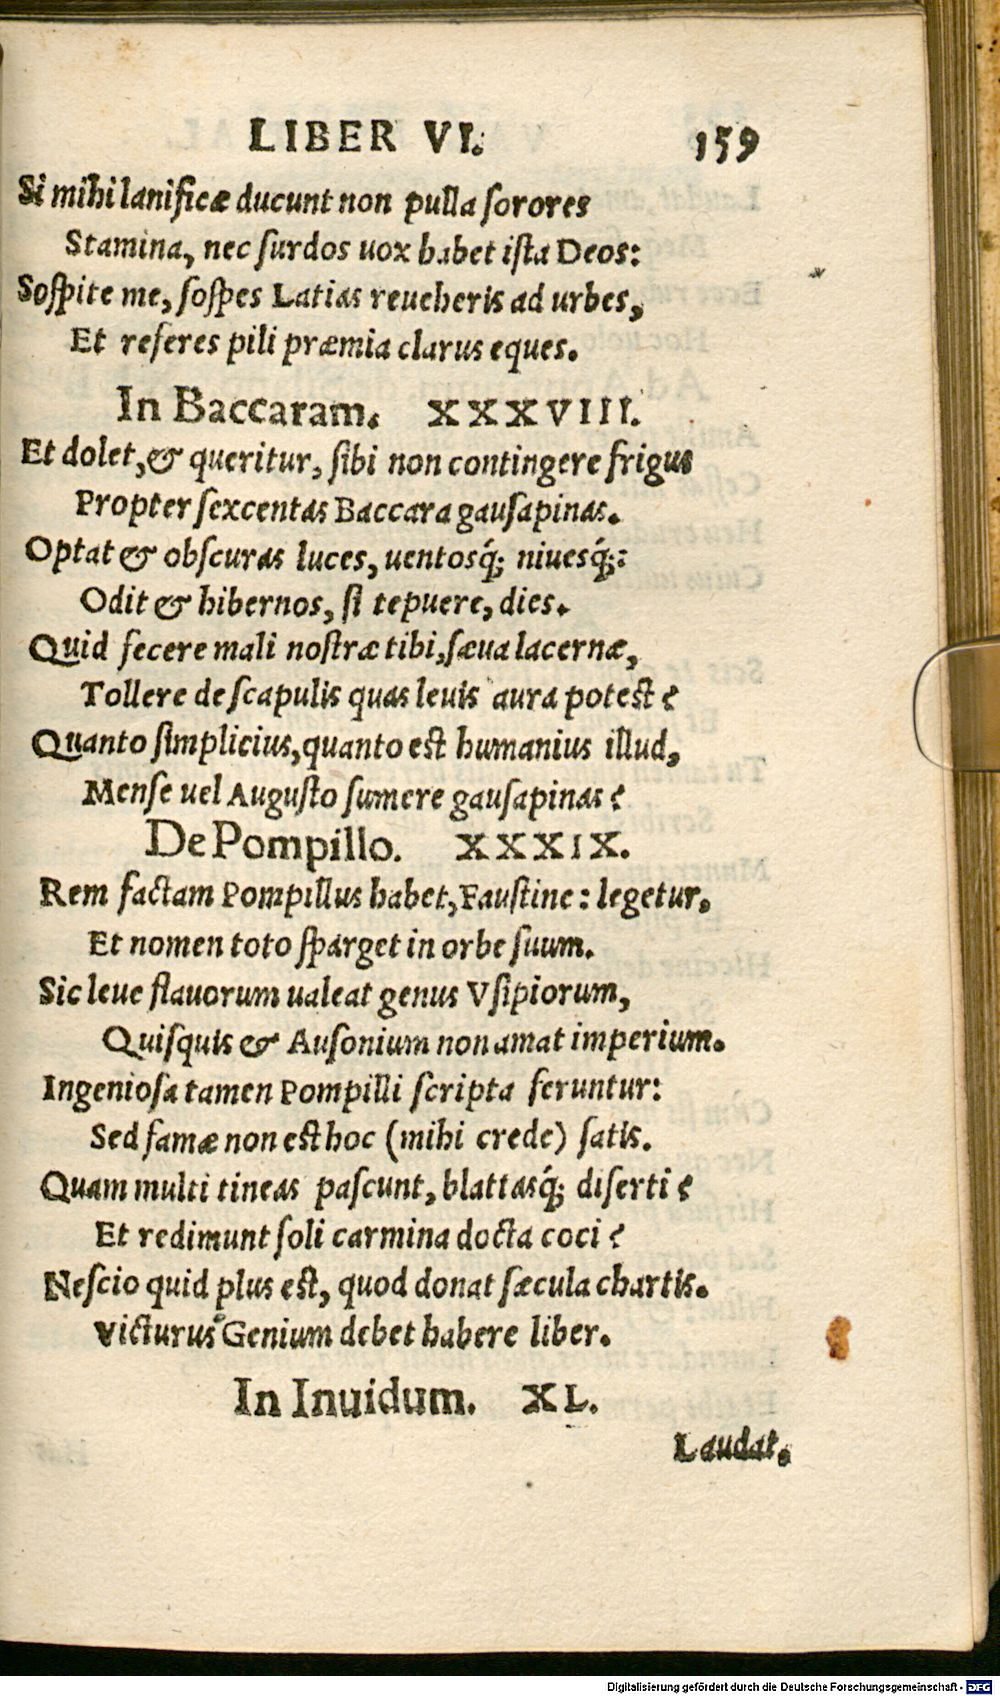 LIBER VI. 159
Si mihi lanificæ ducunt non pulla ſorores
Stamina, nec ſurdos uox habet iſta Deos:
Soſpite me, ſoſpes Latias reueheris ad urbes,
Et referes pili præmia clarus eques.
In Baccaram. XXXVIII.
Et dolet, & queritur, ſibi non contingere frigus
Propter ſexcentas Baccara gauſapinas.
Optat & obſcuras luces, uentosq́; niuesq́;:
Odit & hibernos, ſi tepuere, dies.
Quid fecere mali noſtræ tibi, ſæua lacernæ,
Tollere de ſcapulis quas leuis aura poteſt?
Quanto ſimplicius, quanto eſt humanius illud,
Menſe uel Auguſto ſumere gauſapinas?
De Pompillo. XXXIX.
Rem factam Pompillus habet, Fauſtine: legetur,
Et nomen toto ſparget in orbe ſuum.
Sic leue flauorum ualeat genus Vſipiorum,
Quiſquis & Auſonium non amat imperium.
Ingenioſa tamen Pompilli ſcripta feruntur:
Sed famæ non eſt hoc (mihi crede) ſatis.
Quam multi tineas paſcunt, blattasq́; diſerti?
Et redimunt ſoli carmina docta coci?
Neſcio quid plus eſt, quod donat ſæcula chartis.
Victurus Genium debet habere liber.
In Inuidum. XL.
Laudat,
Digitalisierung gefördert durch die Deutsche Forschungsgemeinschaft - DFG